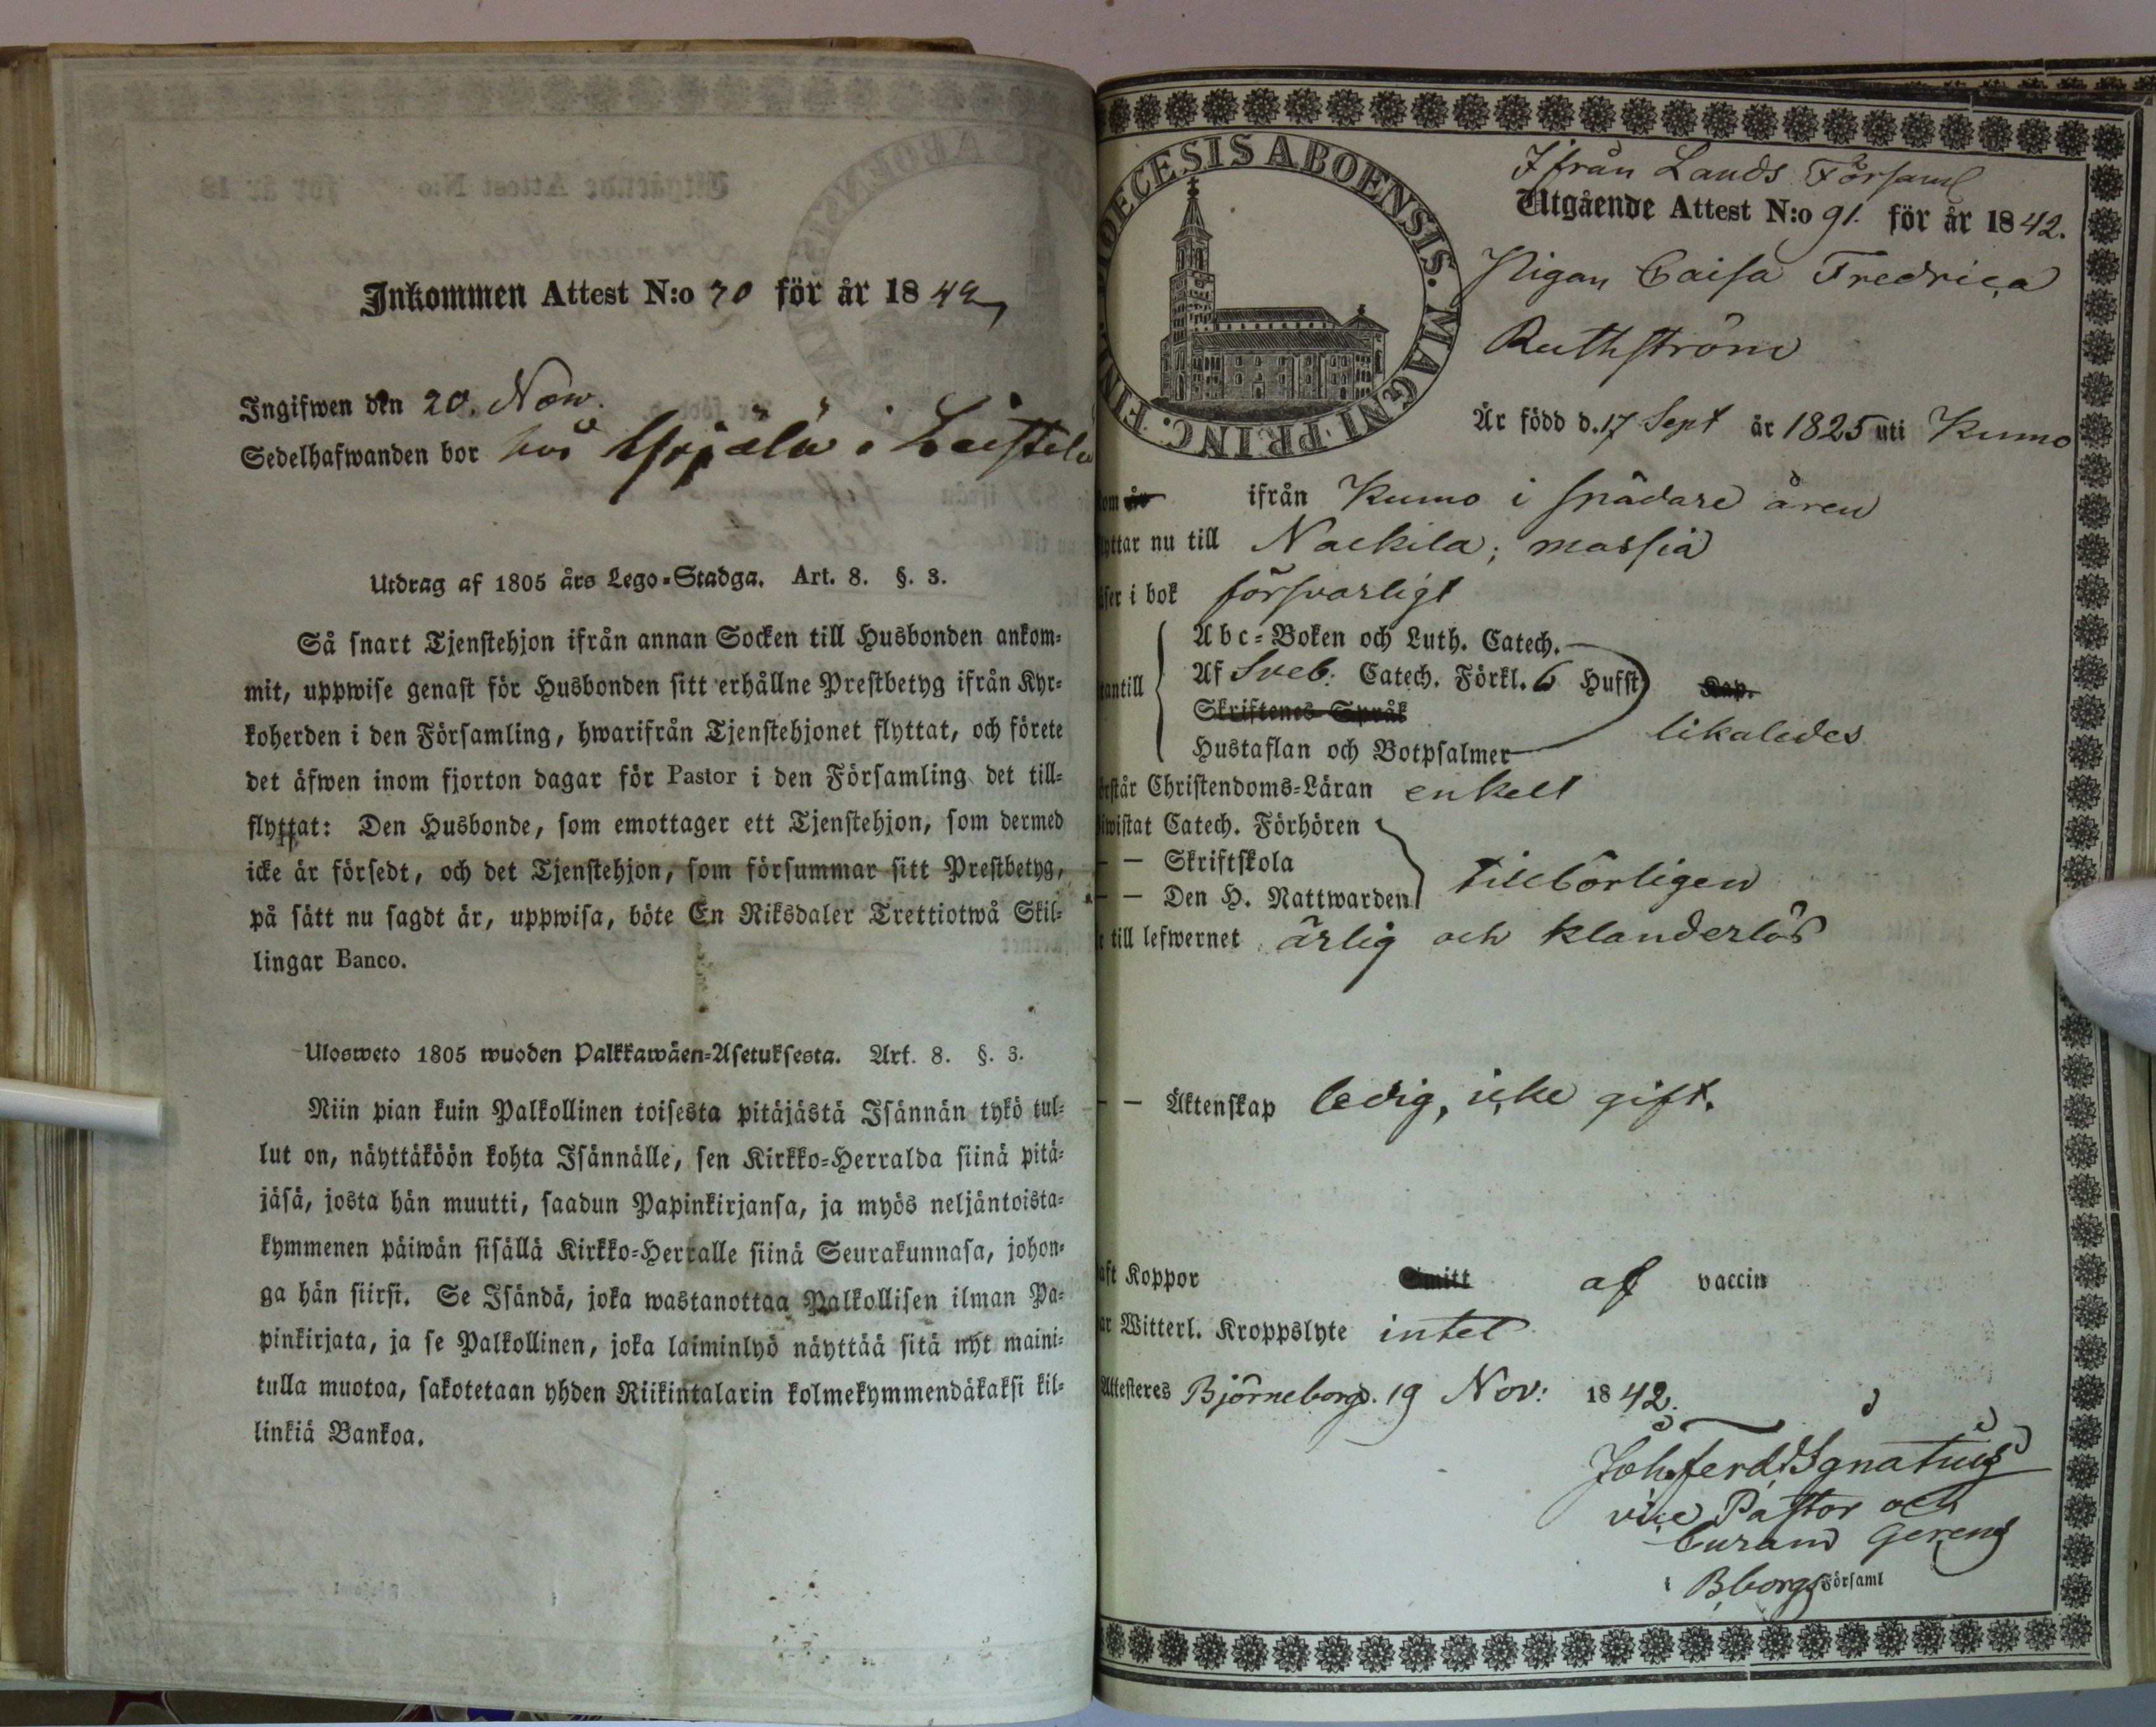 Inkommen Attest N:o 70 för år 1842
Ingifwen den 20. Nov.
Sedelhafwanden bor hos Yrjälä i Leistilä
Utdrag af 1805 års Lego-Stadga. Art. 8. §. 3.
Så snart Tjenstehjon ifrån annan Socken till Husbonden ankom-
mit, uppwise genast för Husbonden sitt erhållne Prestbetyg ifrån Kyr-
koherden i den Församling, hwarifrån Tjenstehjonet flyttat, och förete
det äfwen inom fjorton dagar för Pastor i den Församling det till-
flyttat: Den Husbonde, som emottager ett Tjenstehjon, som dermed
icke är försedt, och det Tjenstehjon, som försummar sitt Prestbetyg,
på sätt nu sagdt är, uppwisa, böte En Riksdaler Trettiotwå Skil-
lingar Banco.
Ulosweto 1805 wuoden Palkkawäen-Asetuksesta. Art. 8. §. 3.
Niin pian kuin Palkollinen toisesta pitäjästä Isännän tykö tul-
lut on, näyttäköön kohta Isännälle, sen Kirkko-Herralda siinä pitä-
jäsä, josta hän muutti, saadun Papinkirjansa, ja myös neljäntoista-
kymmenen päiwän sisällä Kirkko-Herralle siinä Seurakunnasa, johon-
ga hän siirsi. Se Isändä, joka wastanottaa Palkollisen ilman Pa-
pinkirjata, ja se Palkollinen, joka laiminlyö näyttää sitä nyt maini-
tulla muotoa, sakotetaan yhden Riikintalarin kolmekymmendäkaksi kil-
linkiä Bankoa.
DIOECESIS ABOENSIS. MAGNI PRINC. FINL.
Ifrån Lands Församl
Utgående Attest N:o 91. för år 1842.
Pigan Caisa Fredrica
Ruthström
Är född d. 17 Sept år 1825 uti Kumo
kom år ifrån Kumo i spädare åren
flyttar nu till Nackila; mässia
läser i bok försvarligt
Abc-Boken och Luth. Catech.
utantill Af Sveb: Catech. Förkl. 6 Hufst Kap.
Skriftenes Språk
likaledes
Hustaflan och Botpsalmer
förstår Christendoms-Läran enkelt
biwistat Catech. Förhören
— — Skriftskola
tillbörligen
— — Den H. Nattwarden
är till lefwernet ärlig och klanderlös
— — Äktenskap ledig, icke gift.
haft Koppor Smitt af vaccin
har Witterl. Kroppslyte intet
Attesteres Björneborg d. 19 Nov: 1842.
Joh. Ferd. Ignatius
vice Pastor och
Curam Gerens
i Bborgs Församl